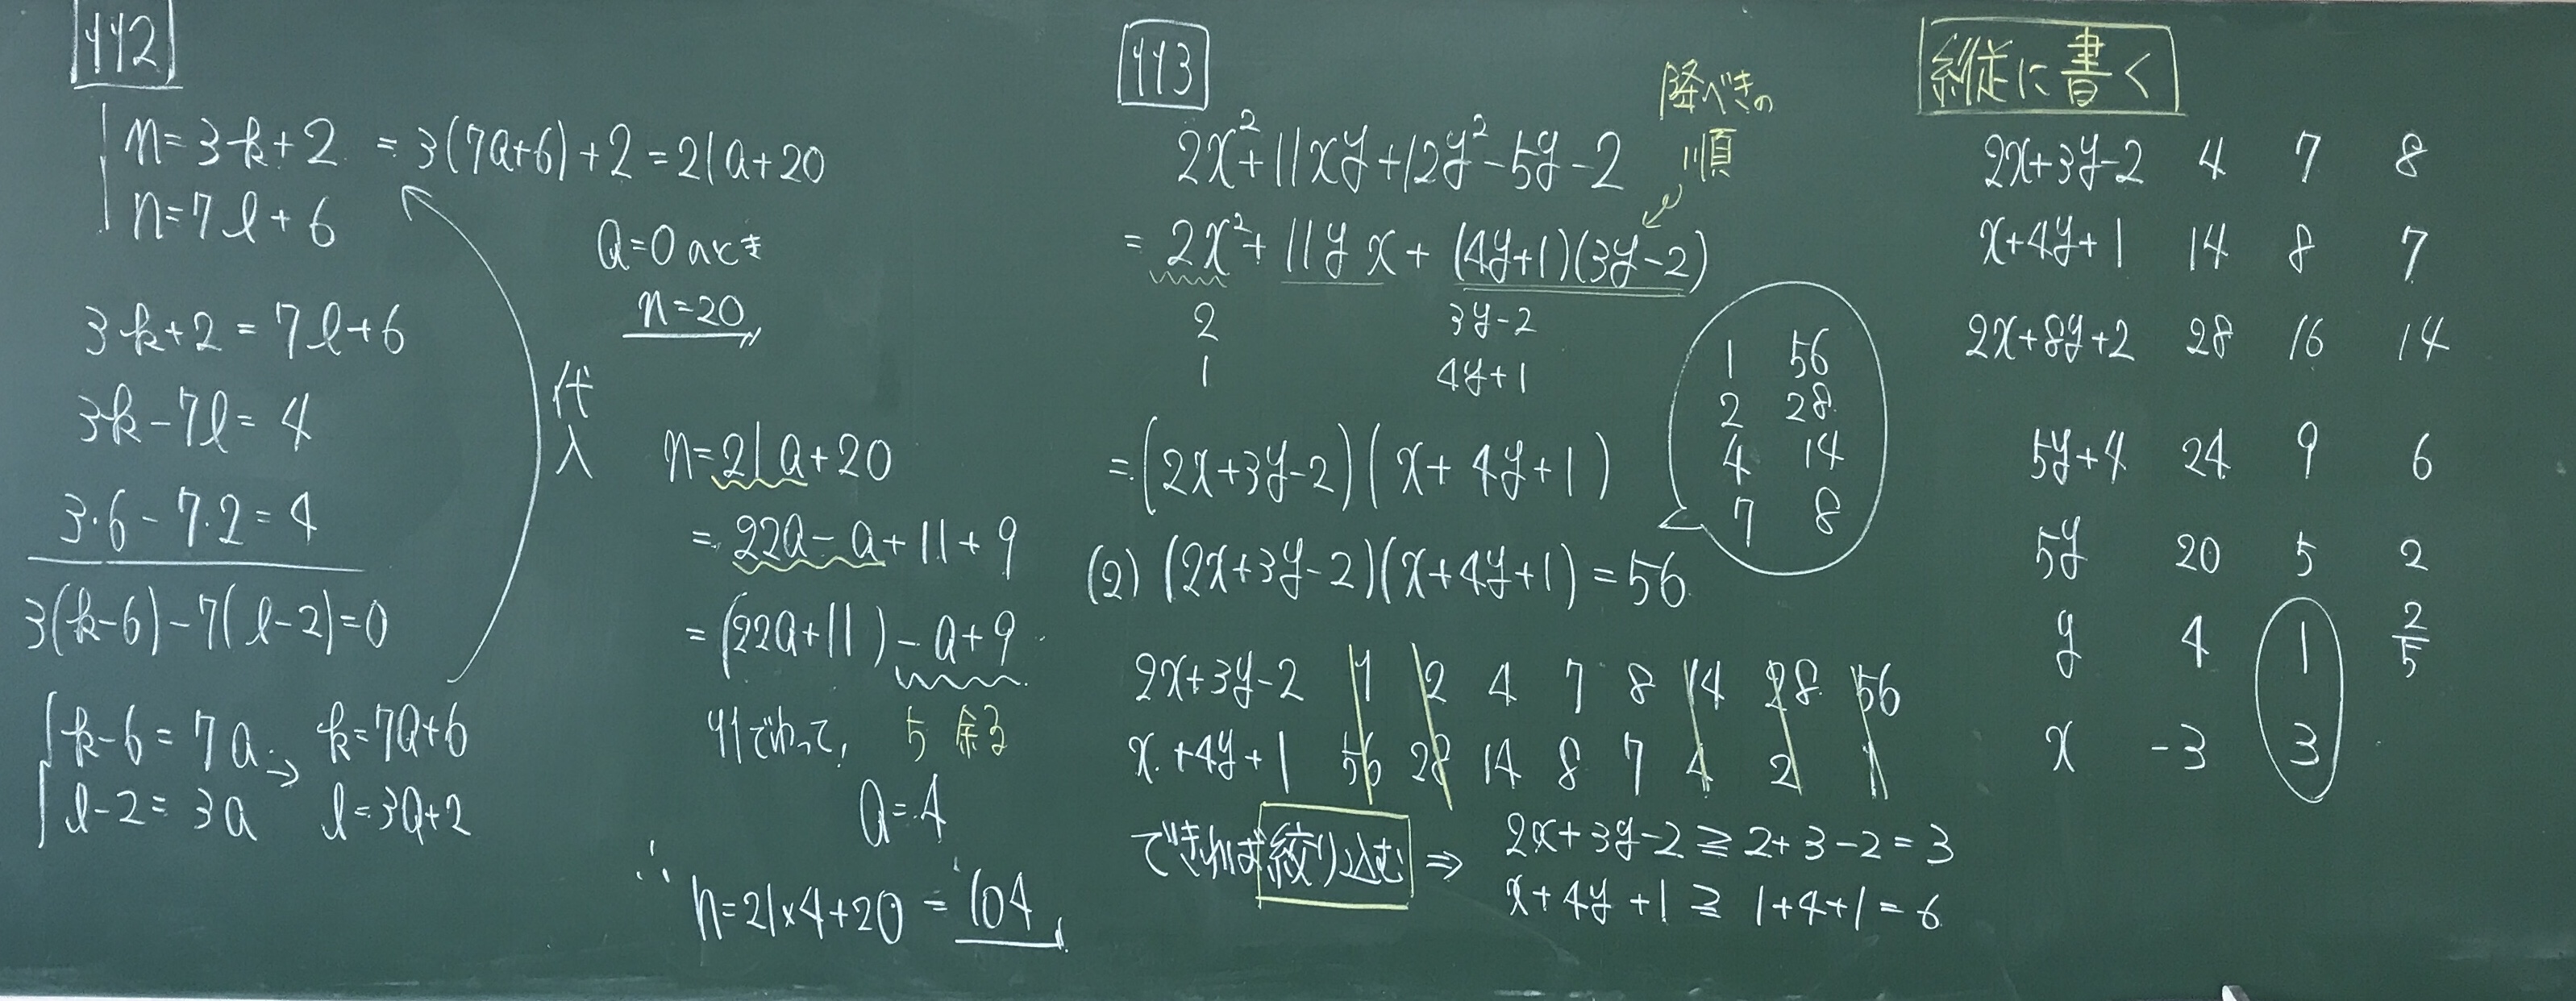 112
n=3k+2 =3(7a+6)+2=21a+20
n=7l+6
3k+2=7l+6
3k-7l=4
3・6-7・2=4
3(k-6)-7(l-2)=0
k-6=7a → k=7a+6
l-2=3a l=3a+2
代入
a=0のとき
n=20
n=21a+20
=22a-a+11+9
=(22a+11)-a+9
11でわって, 5余る
a=4
∴ n=21×4+20=104
113
2x²+11xy+12y²-5y-2
降べきの
順
=2x²+11yx+(4y+1)(3y-2)
2 3y-2
1 4y+1
=(2x+3y-2)(x+4y+1)
1 56
2 28
4 14
7 8
(2) (2x+3y-2)(x+4y+1)=56
2x+3y-2 1 2 4 7 8 14 28 56
x+4y+1 56 28 14 8 7 4 2 1
できれば絞り込む ⇒ 2x+3y-2≧2+3-2=3
x+4y+1≧1+4+1=6
縦に書く
2x+3y-2 4 7 8
x+4y+1 14 8 7
2x+8y+2 28 16 14
5y+4 24 9 6
5y 20 5 2
y 4 1 2/5
x -3 3